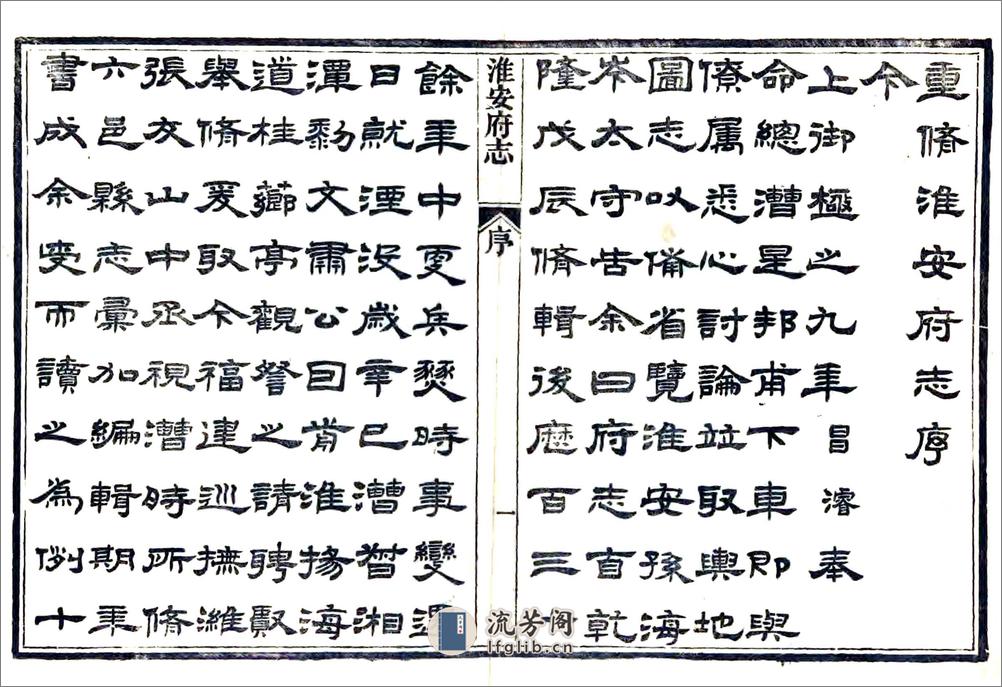 重脩淮安府志序
今
上御極之九年昌濬奉
命總漕是邦甫下車即與
僚属悉心討論竝取輿地
圖志以備省覽淮安孫海
岑太守告余曰府志自乾
隆戊辰脩輯後歷百三十
淮安府志
序
一
餘年中更兵燹時事變遷
日就湮沒歲辛巳漕督湘
潭黎文肅公囙歬淮揚海
道桂薌亭觀詧之請聘賢
舉脩爰取今福建巡撫濰
張友山中丞視漕時所脩
六邑縣志彙加編輯期年
書成余受而讀之為例十
流芳阁
lfglib.cn